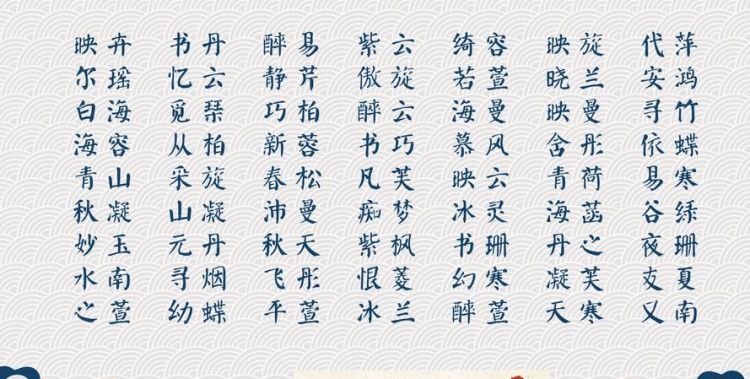 映卉 书丹 醉易 紫云 绮容 映旋 代萍
尔瑶 忆云 静芹 傲旋 若萱 晓兰 安鸿
白海 觅琹 巧柏 醉云 海曼 映曼 寻竹
海容 从柏 新蓉 书巧 慕风 舍彤 依蝶
青山 采旋 春松 凡芙 映云 青荷 易寒
秋凝 山凝 沛曼 痴梦 冰灵 海菡 谷
妙玉 元丹 秋天 紫枫 书珊 丹之 夜珊
水南 寻烟 飞彤 恨菱 幻寒 凝芙 友夏
之萱 幼蝶 平萱 冰兰 醉萱 天寒 又南